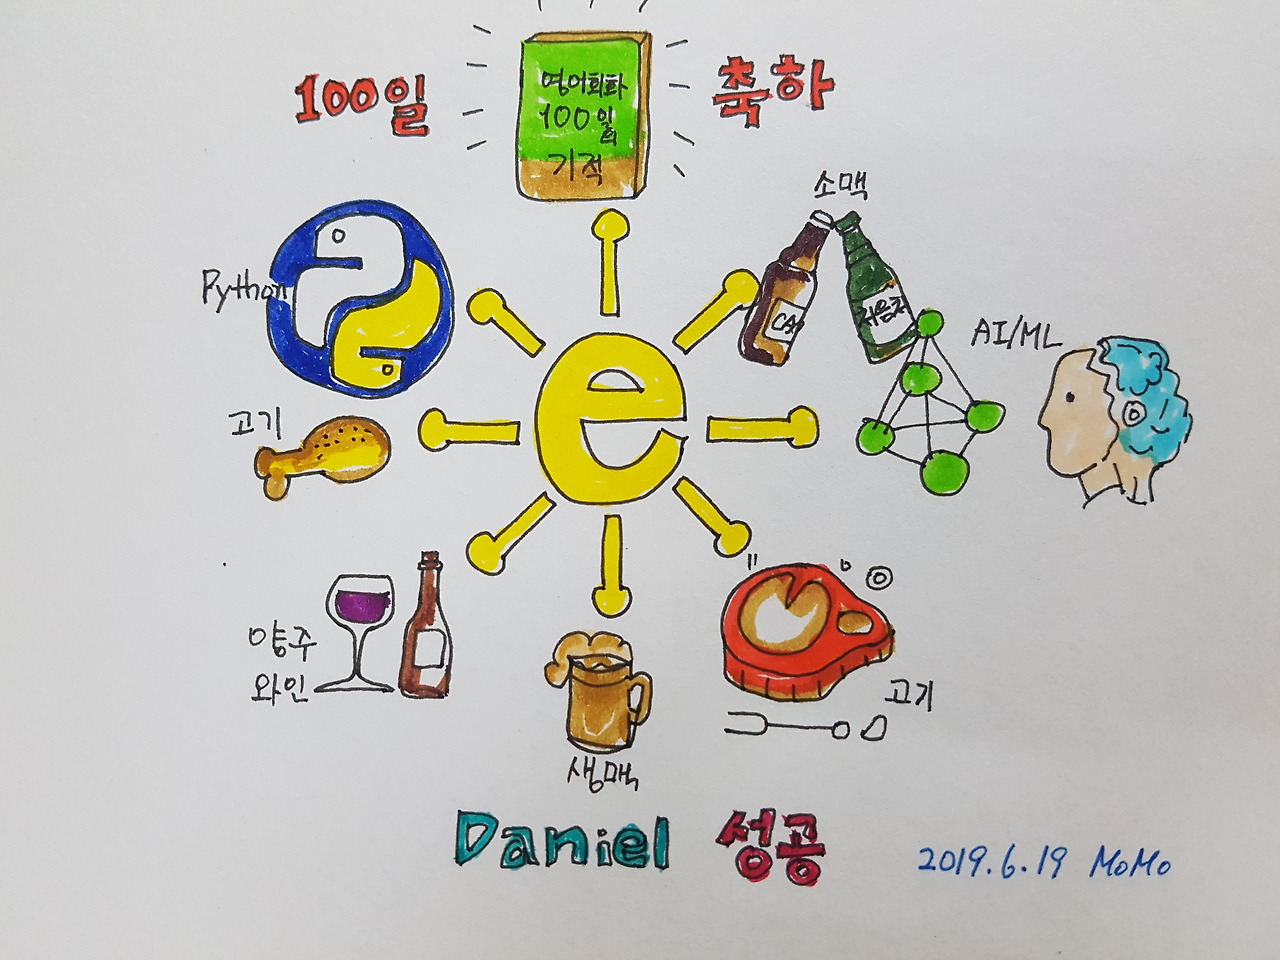 100일
축하
영어회화
100일의
기적
소맥
Python
CA
처음처
AI/ML
고기
e
양주
와인
고기
생맥
Daniel 성공
2019.6.19 MoMo